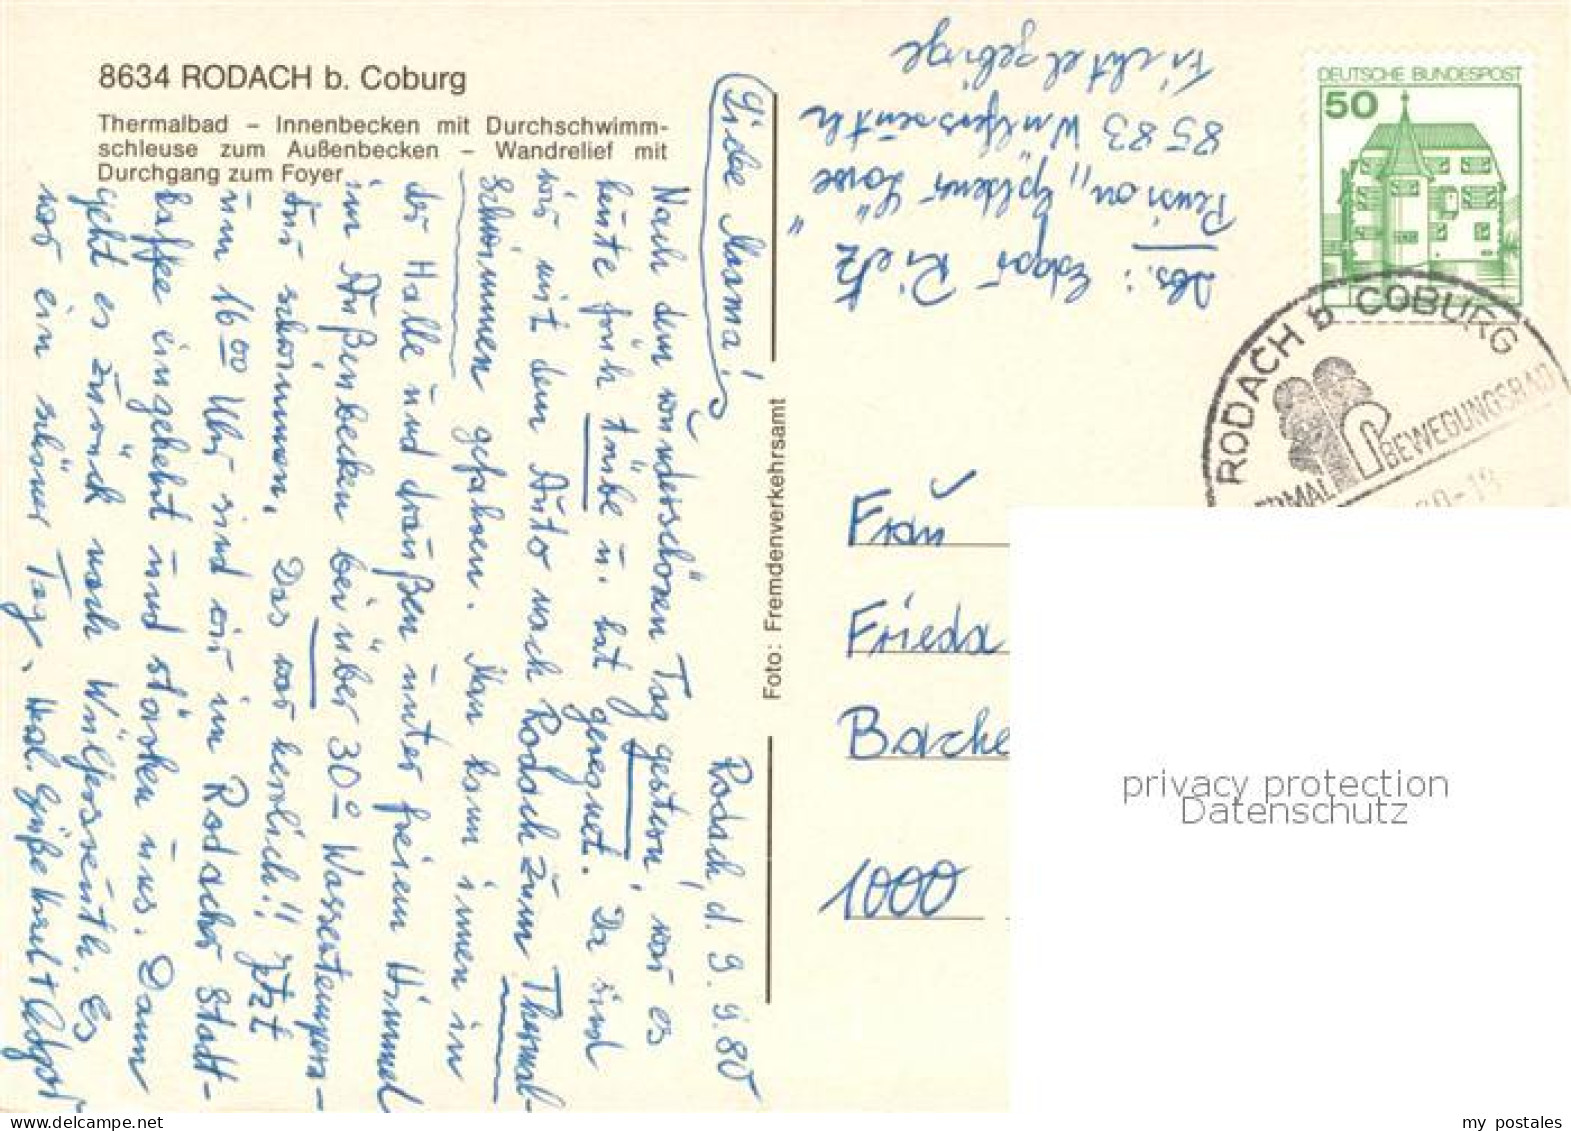 8634 RODACH b. Coburg
Thermalbad – Innenbecken mit Durchschwimm-
schleuse zum Außenbecken – Wandrelief mit
Durchgang zum Foyer
Rodach, d. 9.9.80
Liebe Mama!
Nach dem wunderschönen Tag gestern, war es
heute früh trübe u. hat geregnet. Da sind
wir mit dem Auto nach Rodach zum Thermal-
schwimmen gefahren. Man kann innen in
der Halle und draußen unter freiem Himmel
im Außenbecken bei über 30° Wassertempera-
tur schwimmen. Das war herrlich!! Jetzt
um 16 00 Uhr sind wir im Rodacher Stadt-
kaffe eingekehrt und stärken uns. Dann
geht es zurück nach Wülfersreuth. Es
war ein schöner Tag. Edgar
Foto: Fremdenverkehrsamt
Abs.: Edgar
Pension „Goldener Löwe"
8583 Wülfersreuth
Fichtelgebirge
DEUTSCHE BUNDESPOST
50
RODACH b COBURG
BEWEGUNGSBAD
Frau
Frieda
1000
privacy protection
Datenschutz
my postales